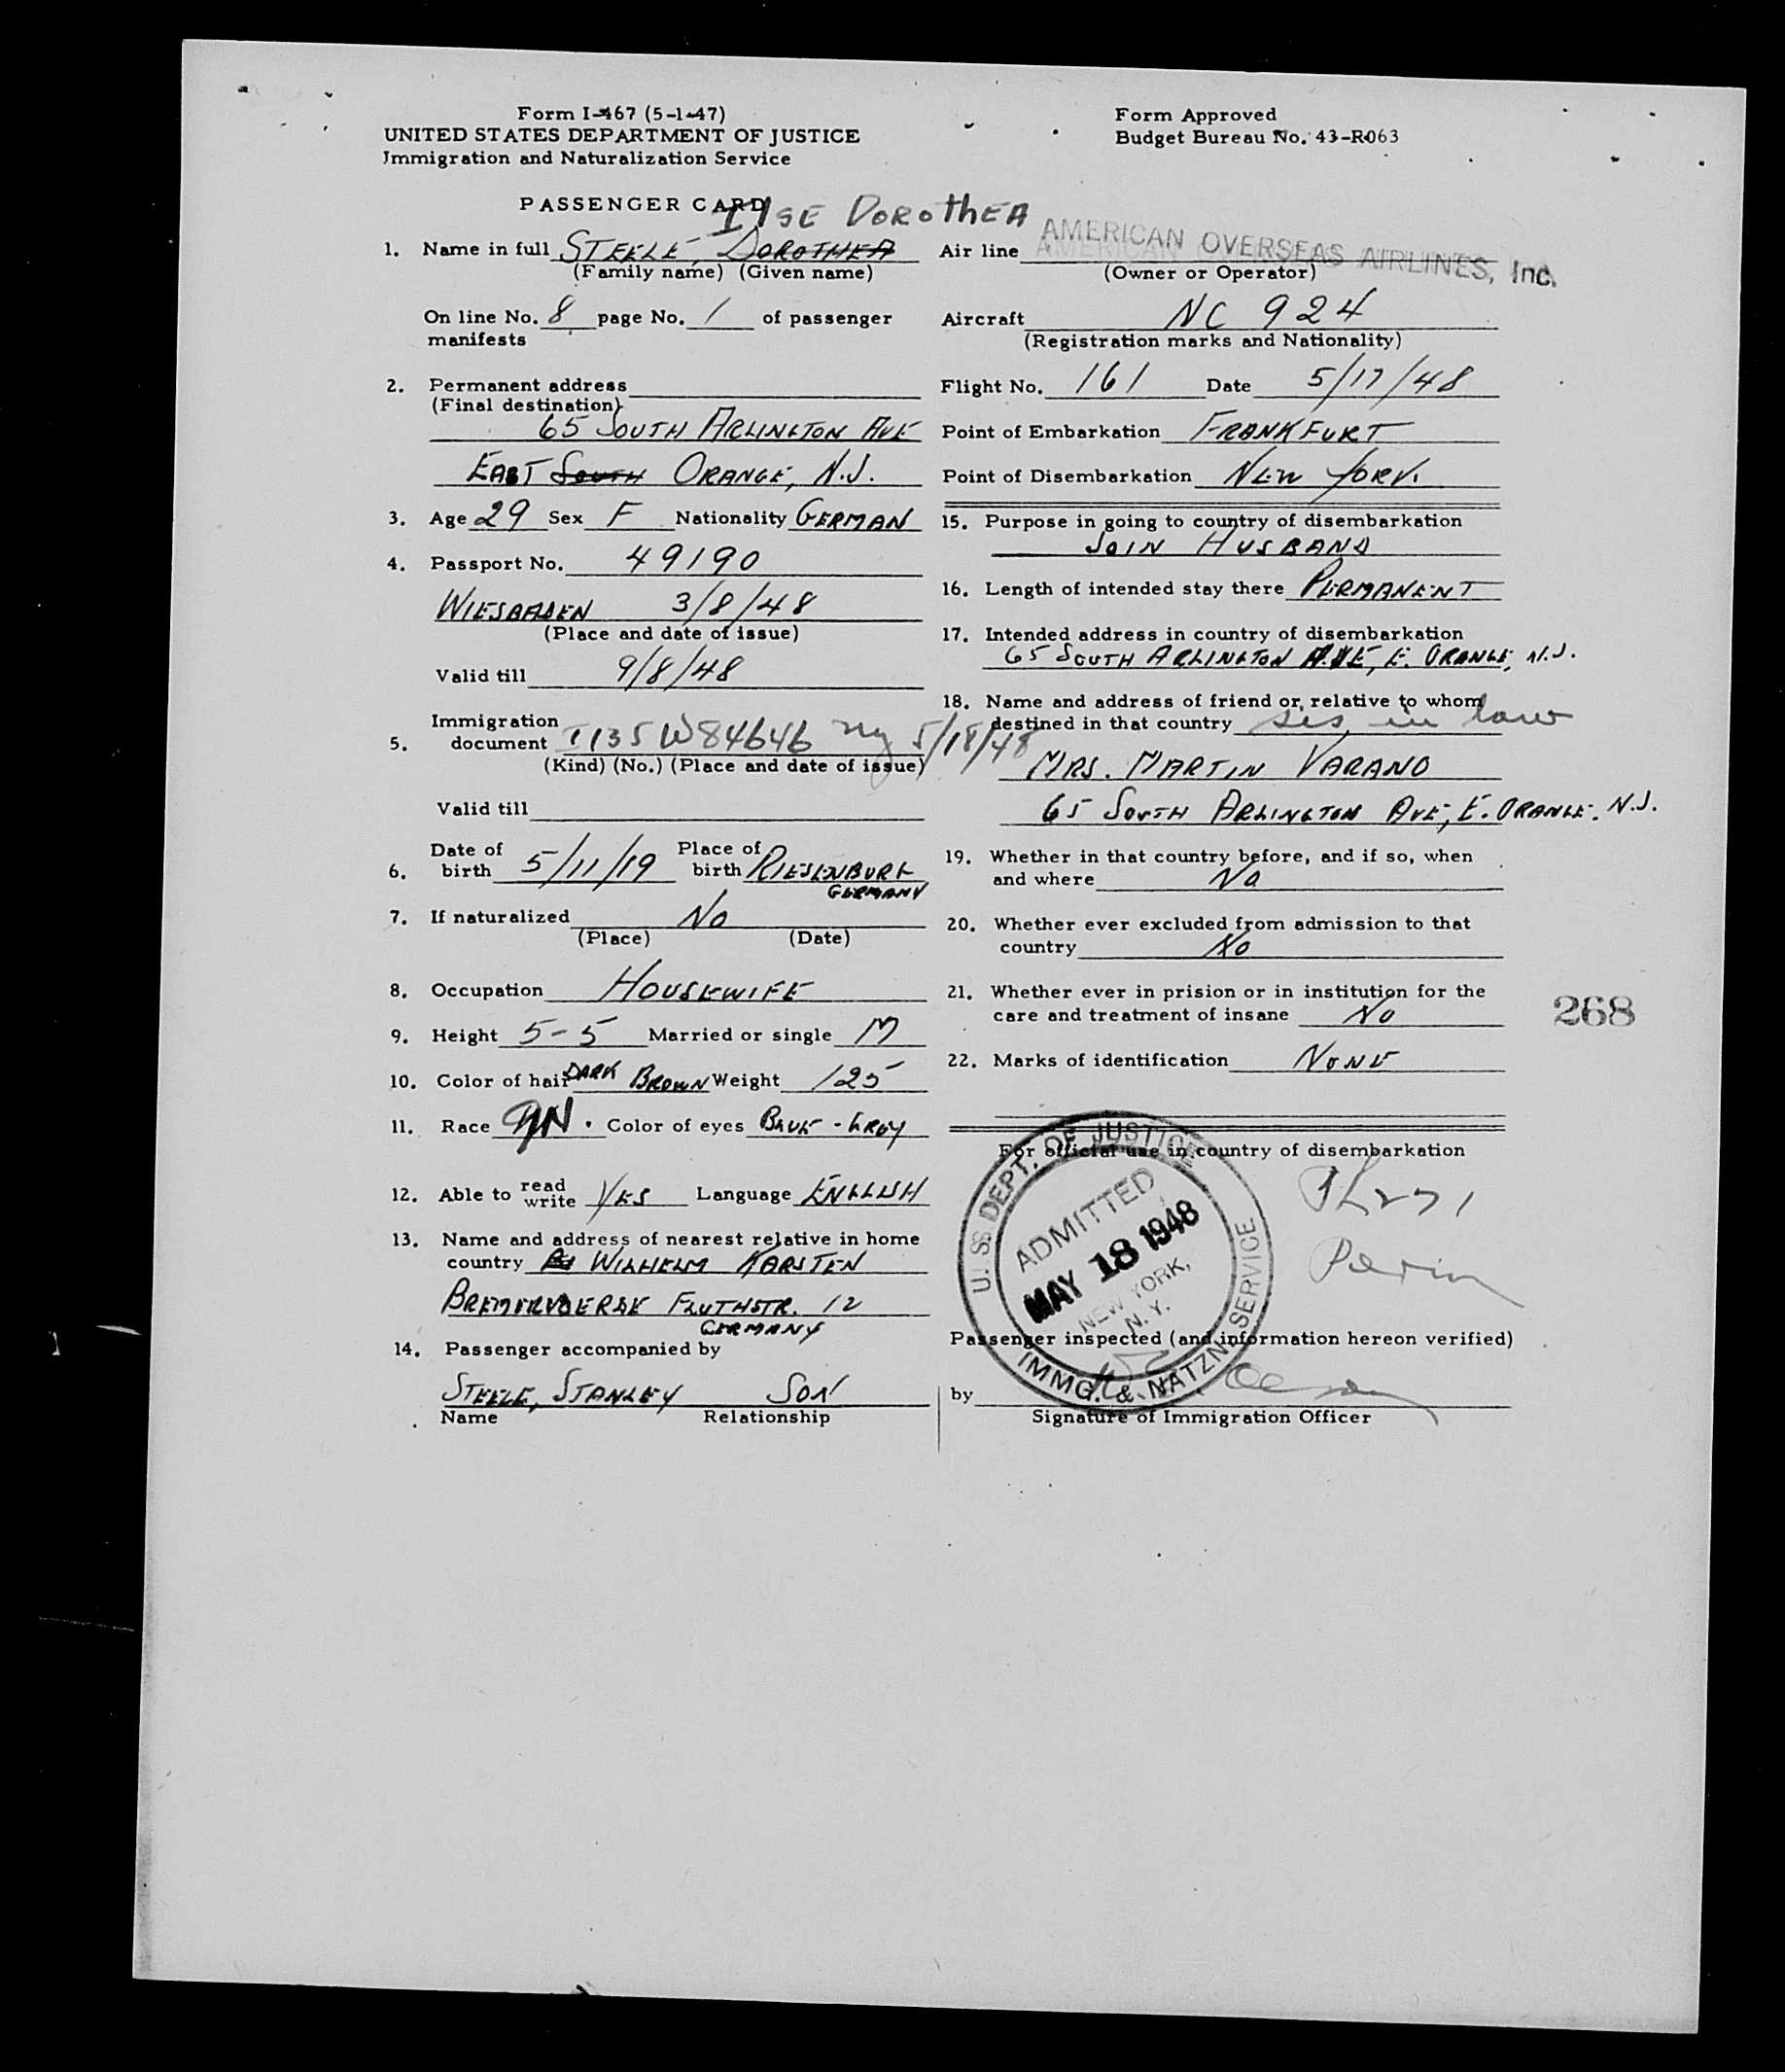 Form I-467 (5-1-47)
UNITED STATES DEPARTMENT OF JUSTICE
Immigration and Naturalization Service
Form Approved
Budget Bureau No. 43-R063
PASSENGER CARD
ILSE DOROTHEA
1. Name in full STEELE, DOROTHEA
(Family name) (Given name)
On line No. 8 page No. 1 of passenger
manifests
2. Permanent address
(Final destination)
65 SOUTH ARLINGTON AVE
EAST SOUTH ORANGE, N.J.
3. Age 29 Sex F Nationality GERMAN
4. Passport No. 49190
WIESBADEN 3/8/48
(Place and date of issue)
Valid till 9/8/48
5. Immigration
document I135 W84646 NY 5/18/48
(Kind) (No.) (Place and date of issue)
Valid till
6. Date of birth 5/11/19 Place of birth RIESENBURG
GERMANY
7. If naturalized No
(Place) (Date)
8. Occupation HOUSEWIFE
9. Height 5-5 Married or single M
10. Color of hair DARK BROWN Weight 125
11. Race Color of eyes BLUE - GREY
12. Able to read write YES Language ENGLISH
13. Name and address of nearest relative in home
country WILHELM KARSTEN
BREMERVOERDE FLUTHSTR. 12
GERMANY
14. Passenger accompanied by
STEELE, STANLEY SON
Name Relationship
Air line AMERICAN OVERSEAS AIRLINES, Inc.
(Owner or Operator)
Aircraft NC 924
(Registration marks and Nationality)
Flight No. 161 Date 5/17/48
Point of Embarkation FRANKFURT
Point of Disembarkation NEW YORK.
15. Purpose in going to country of disembarkation
JOIN HUSBAND
16. Length of intended stay there PERMANENT
17. Intended address in country of disembarkation
65 SOUTH ARLINGTON AVE, E. ORANGE, N.J.
18. Name and address of friend or relative to whom
destined in that country sis in law
MRS. MARTIN VARANO
65 SOUTH ARLINGTON AVE, E. ORANGE. N.J.
19. Whether in that country before, and if so, when
and where No
20. Whether ever excluded from admission to that
country No
21. Whether ever in prision or in institution for the
care and treatment of insane No
268
22. Marks of identification NONE
For official use in country of disembarkation
U. S. DEPT. OF JUSTICE
ADMITTED
MAY 18 1948
NEW YORK,
N. Y.
IMMG. & NATZN. SERVICE
Passenger inspected (and information hereon verified)
by
Signature of Immigration Officer